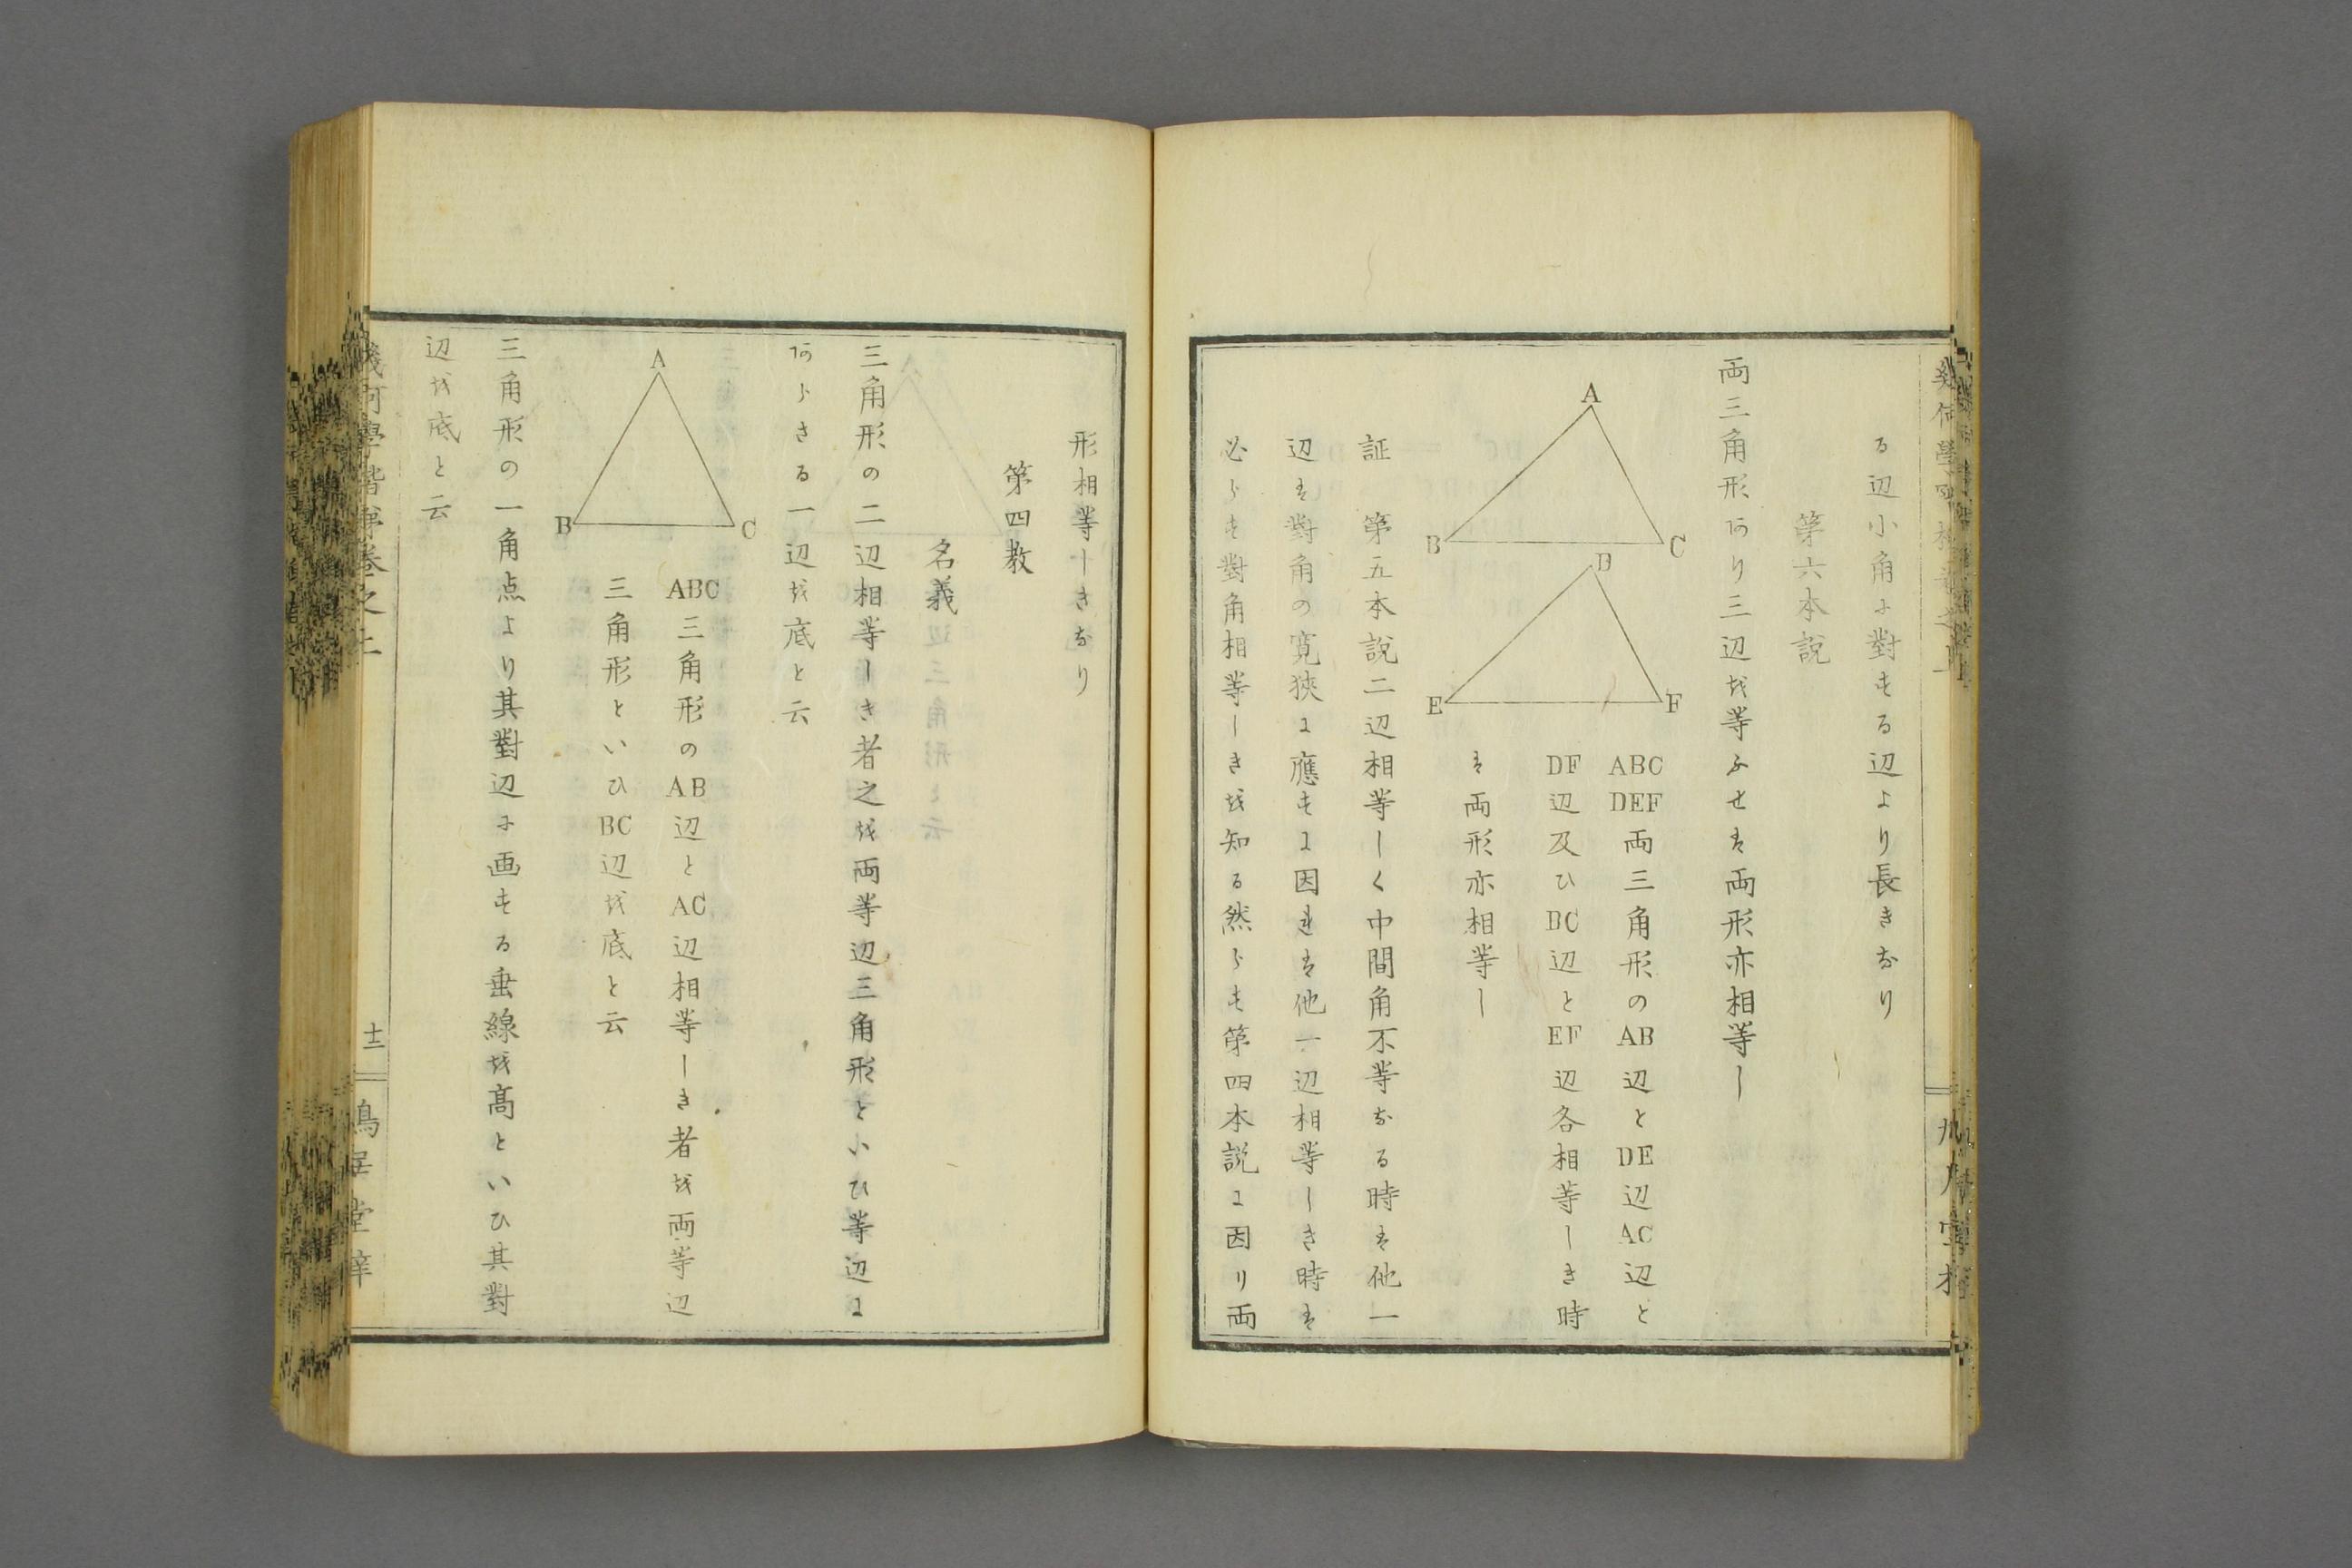 る辺小角に對する辺より長きなり
第六本説
両三角形あり三辺を等ふせは両形亦相等し
A
B
C
D
E
F
ABC DEF両三角形のAB辺とDE辺AC辺と
DF辺及ひBC辺とEF辺各相等しき時
は両形亦相等し
証 第五本説二辺相等しく中間角不等なる時は他一
辺は對角の寛狭に應すに因れは他一辺相等しき時は
必らす對角相等しきを知る然らは第四本説に因り両
形相等しきなり
第四教
名義
三角形の二辺相等しき者之を両等辺三角形といひ等辺に
あらさる一辺を底と云
A
B
C
ABC三角形のAB辺とAC辺相等しき者を両等辺
三角形といひBC辺を底と云
三角形の一角点より其對辺に画する垂線を髙といひ其對
辺を底と云
幾何學階梯卷之上
十二